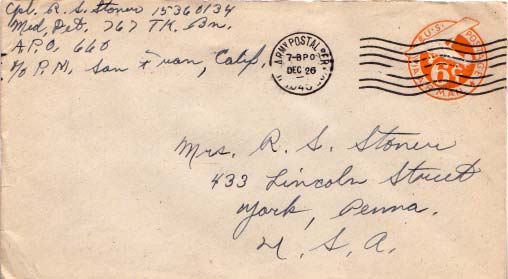 Cpl. R. S. Stoner 15360134
Med. Det. 767 TK. Bn.
A.P.O. 660
c/o P.M. San Fran, Calif.
U.S. ARMY POSTAL SER
7-BPO
DEC 26
U.S. POSTAGE
6¢
VIA AIR MAIL
Mrs. R. S. Stoner
433 Lincoln Street
York, Penna.
U. S. A.